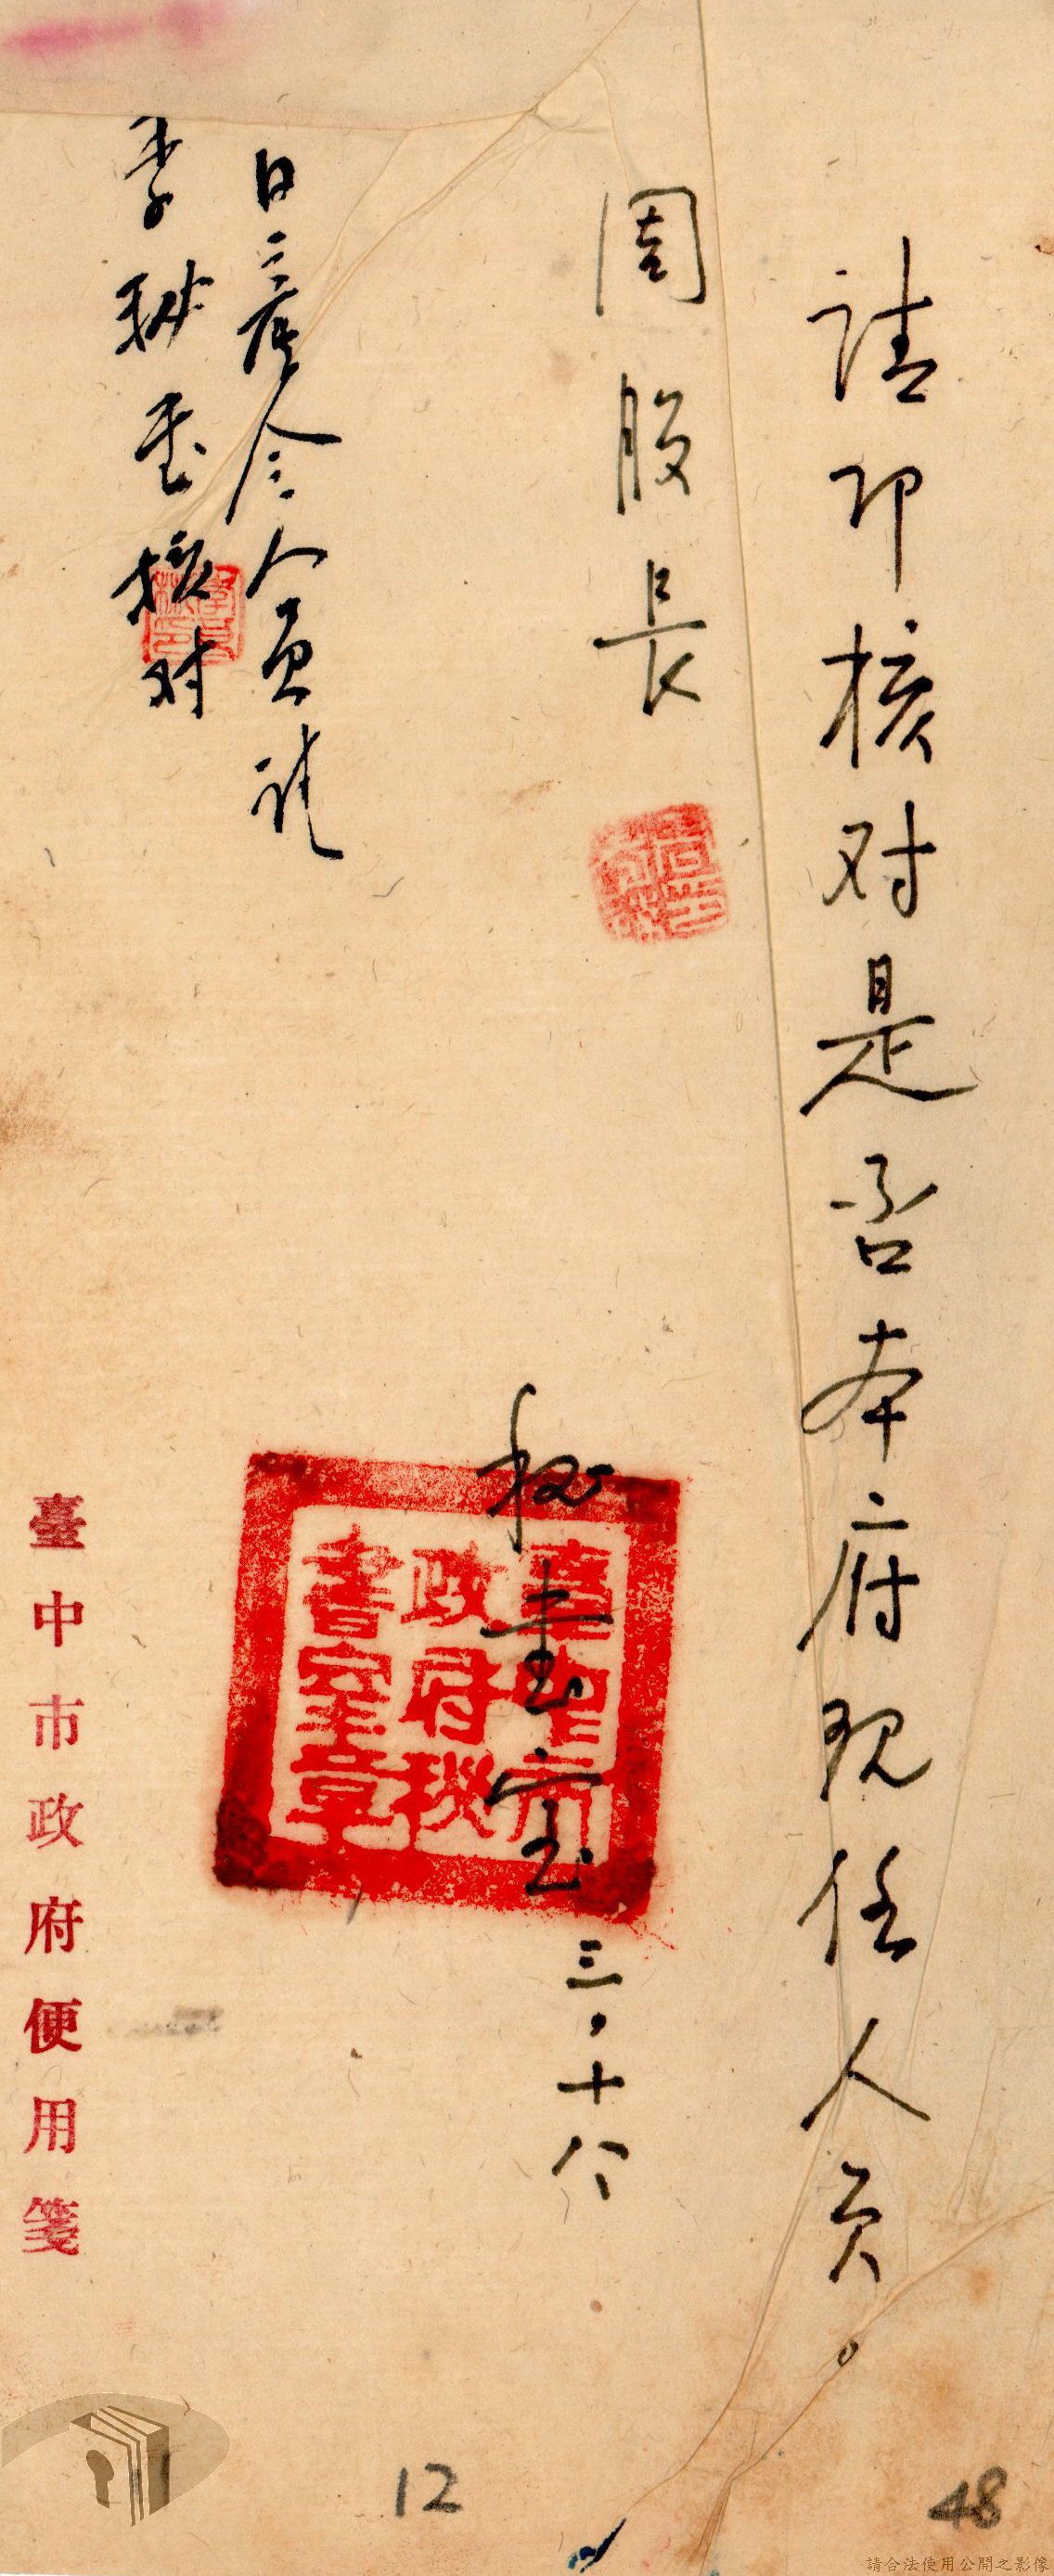 请即核对是否本府现任人员。
周股长
秘書室
三.十八
臺中市
政府秘
書室章
李秘書核对
臺中市政府便用箋
12
48
請合法使用公開之影像